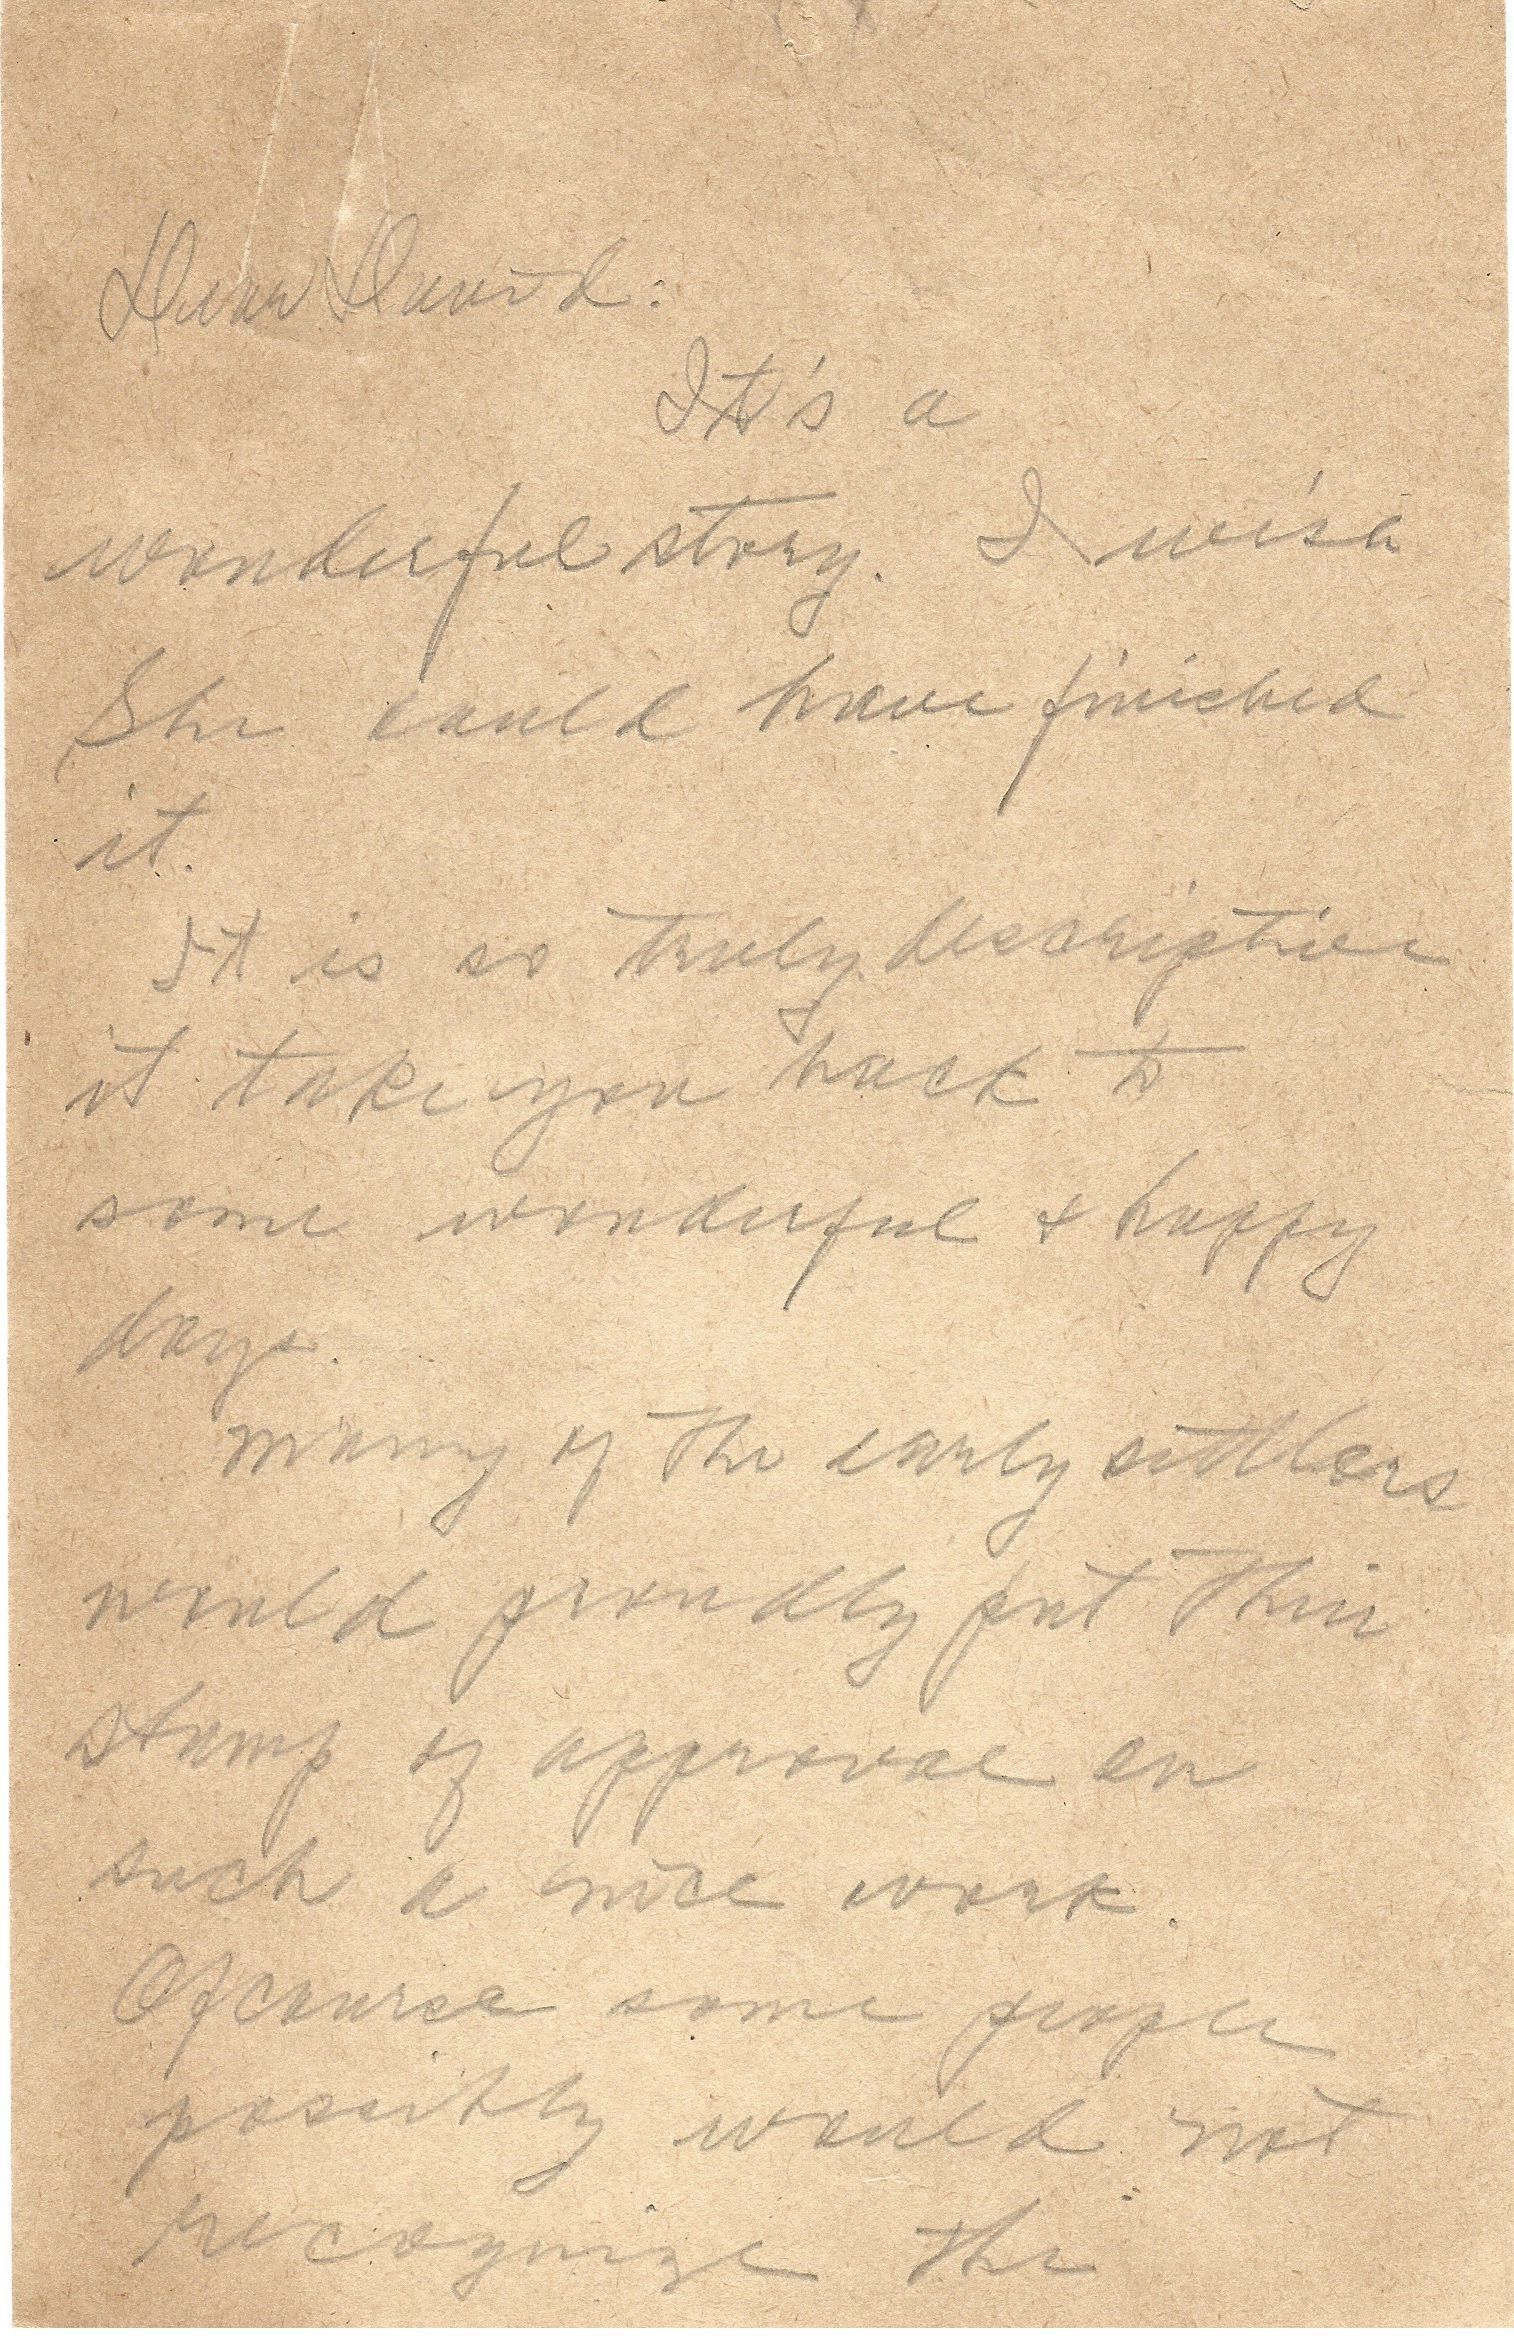 Dear David:
It's a
wonderful story. I wish
She could have finished
it.
It is so truly descriptive
it take you back to
some wonderful & happy
days.
Many of the early settlers
would proudly put their
stamp of approval on
such a nice work.
Ofcourse some people
possibly would not
recognize the